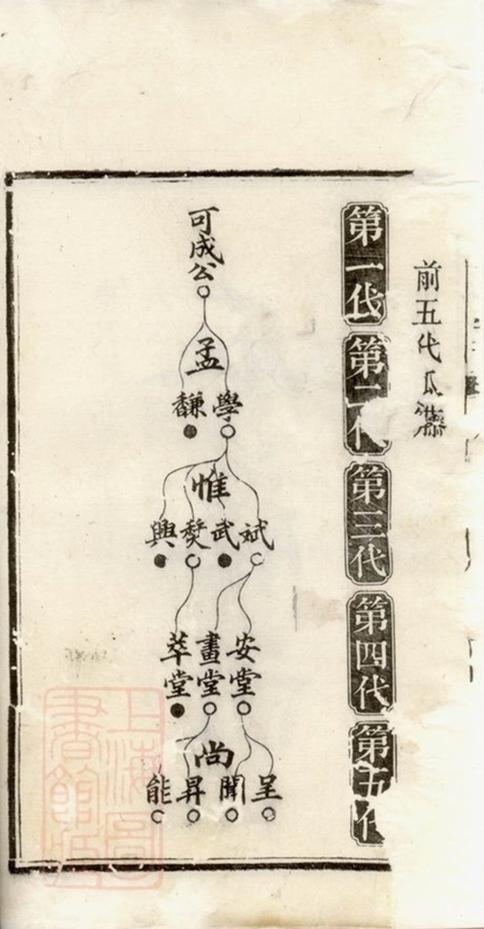 前五代瓜
第一代
第二代
第三代
第四代
第五代
可成公
孟
學
馦
惟
斌
武
燓
興
安堂
畫堂
萃堂
尚
呈
聞
昇
能
上海圖
書館